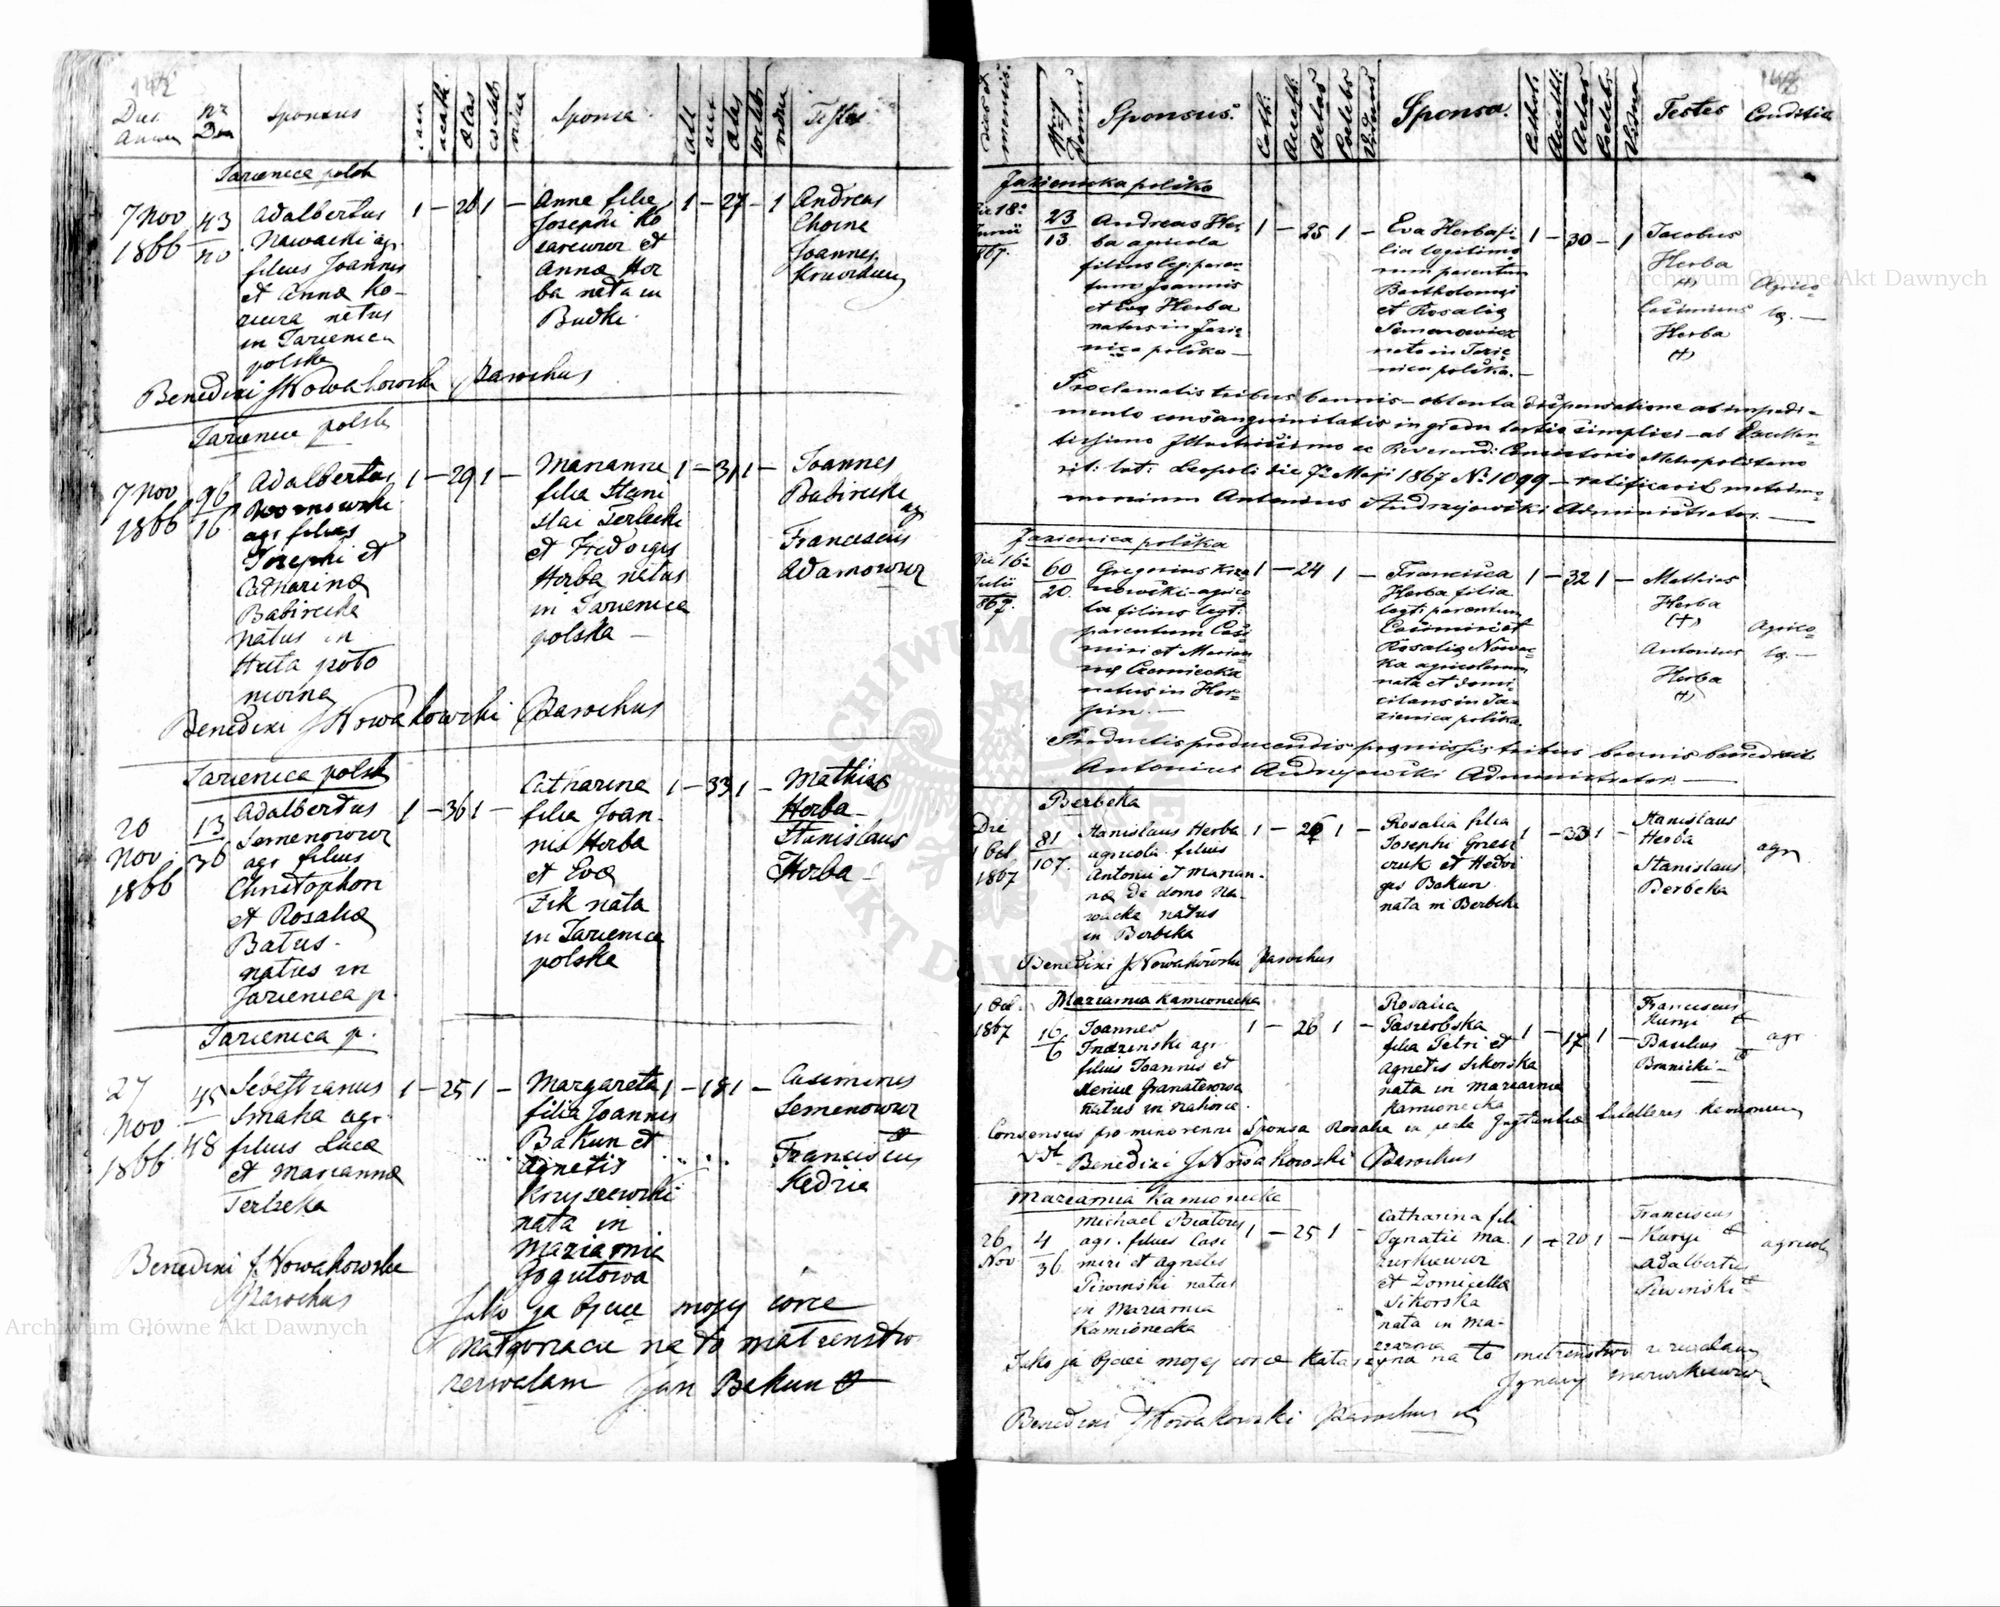 Sponsus
Sponsa
Testes
Jazienica polsk
7 Nov
1866
43
40
Adalbertus
Nawacki agr
filius Joannis
et Anna Ko-
natus
in Jazienica
polska
1 — 26 1 —
Anna filia
Josephi Ko
et
Anna Hor
ba nata in
Budki
1 — 27 — 1
Andreas
Joannes
Benedixi J Nowakowski Parochus
Jazienica polsk
7 Nov
1866
96
16
Adalbertus
agr filius
Josephi et
Catharina
Babirecka
natus in
Huta poło
1 — 29 1 —
Marianna
filia Stani
slai Terlecki
et Hedvigis
Herba natus
in Jazienica
polska —
1 — 31 1 —
Joannes
Babirecki
agr
Franciscus
Adamowicz
Benedixi J Nowakowski Parochus
Jazienica polsk
20
Nov
1866
13
36
Adalbertus
Semenowicz
agr filius
Christophori
et Rosalia
Batus-
natus in
Jazienica p.
1 — 36 1 —
Catharina
filia Joan-
nis Herba
et Eva
Zik nata
in Jazienica
polska
1 — 33 1 —
Mathias
Herba
Stanislaus
Herba
Jazienica p.
27
Nov
1866
45
48
Sebastianus
Smaha agr
filius Luca
et Marianna
Terlecka
1 — 25 1 —
Margareta
filia Joannis
Bakun et
Agnetis
Krzyszewski
nata in
Maziarnia
Gogutowa
1 — 18 1 —
Casimirus
Semenowicz
Franciscus
Kędzia
Benedixi J. Nowakowski
Parochus
Jako ja Ojciec mojej corce
Małgorzacie na to małżenstwo
zezwalam Jan Bakun +
Dies et
mensis.
Nrus
Domus
Sponsus.
Cath:
Acath:
Aetas
Caelebs
Viduus
Sponsa.
Cathol:
Acathl:
Aetas
Caelebs
Vidua
Testes
Conditio
Jazienicka polska
Die 18
Junii
867.
23
13
Andreas Her-
ba agricola
filius leg: paren-
tum Joannis
et Eva Herba
natus in Jazie-
nica polska —
1 — 25 1 —
Eva Herba fi-
lia legitimo-
rum parentum
Bartholomaei
et Rosalia
Semenowicz
nata in Jazie-
nica polska. —
1 — 30 — 1
Jacobus
Herba
(+)
Casimirus
Herba
(+)
Agrico-
la. —
Proclamatis tribus bannis — obtenta dispensatione ab impedi-
mento consanguinitatis in gradu tertio simplici — ab Excellen-
tissimo Illustrissimo ac Reverend: Consistorio Metropolitano
rit: lat: Leopoli die 7 Maji 1867 No 1099 — ratificavit matrimo-
monium Antonius Andrzejowski Administrator. —
Jazienica polska
Die 16
Julii
867.
60
20.
Gregorius
agrico-
la filius legt:
parentum Casi-
miri et Marian-
na Czerniecka
natus in Her-
pin. —
1 — 24 1 —
Francisca
Herba filia
legt: parentum
Casimiri et
Rosalia Nowac-
ka agricolarum
nata et domi-
cilans in Ja-
zienica polska.
1 — 32 1 —
Mathias
Herba
(+)
Antonius
Herba
(+)
Agrico-
la. —
Productis producendis praemissis tribus bannis benedixit
Antonius Andrzejowski Administrator. —
Berbeka
Die
1 Oct
1867
81
107.
Stanislaus Herba
agricola filius
Antonii et Marian-
na de domo Na-
wacka natus
in Berbeka
1 — 26 1 —
Rosalia filia
Josephi
et Hedvi
gis Bakun
nata in Berbeka
1 — 33 1 —
Stanislaus
Herba
Stanislaus
Berbeka
agr
Benedixi J Nowakowski Parochus
Maziarnia Kamionecka
1 Oct.
1867
16
6
Joannes
agr.
filius Joannis et
natus in
1 — 26 1 —
Rosalia
filia Petri et
Agnetis Sikorska
nata in Maziarnia
Kamionecka
1 — 17 1 —
Franciscus
Kuryi +
Basilius
Branicki — +
agr
Consensus pro minorenni Sponsa Rosalia
Benedixi J Nowakowski Parochus
Maziarnia Kamionecka
26
Nov
4
36
Michael
agr. filius Casi
miri et Agnetis
Piwinski natus
in Maziarnia
Kamionecka
1 — 25 1 —
Catharina fili
Ignatii Ma-
zurkiewicz
et Domicella
Sikorska
nata in Ma-
ziarnia
1 — 20 1 —
Franciscus
Kuryi +
Adalbertus
Piwinski +
agricola
Jako ja Ojciec mojej corce Katarzyna na to małżenstwo zezwalam
Ignacy Mazurkiewicz
Benedixi J Nowakowski Parochus
Archiwum Główne Akt Dawnych
Archiwum Główne Akt Dawnych